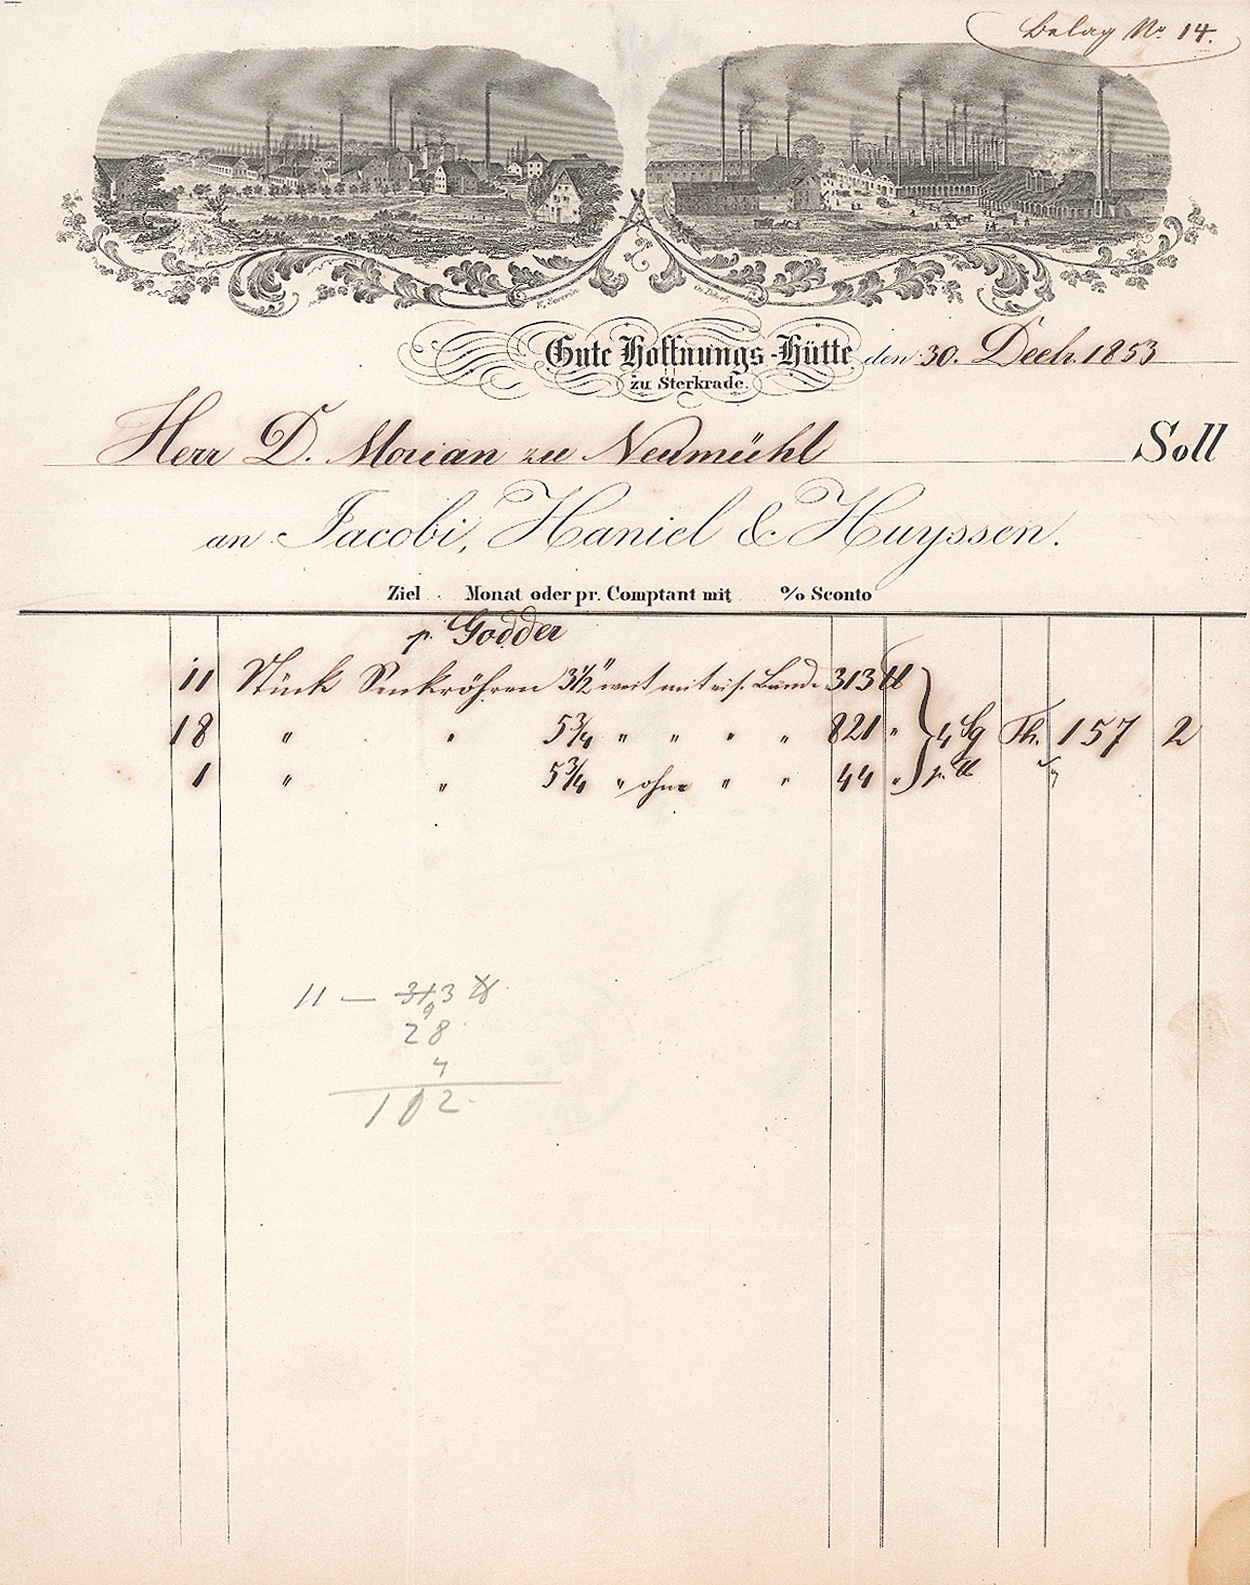 Belag No. 14.
Gute Hoffnungs-Hütte den 30. Decb. 1853
zu Sterkrade.
Herr D. Morian zu Neumühl Soll
an Jacobi, Haniel & Huyssen.
Ziel Monat oder pr. Comptant mit % Sconto
p. Godder
11 Stück Senkröhren 3½" weit mit eis. Band. 313 ℔
18 " " 5¾ " " " " 821 " 4 Sg Th. 157 2
1 " " 5¾ " ohne " " 44 " p. ℔
11 — 313 ℔
9
28
4
102